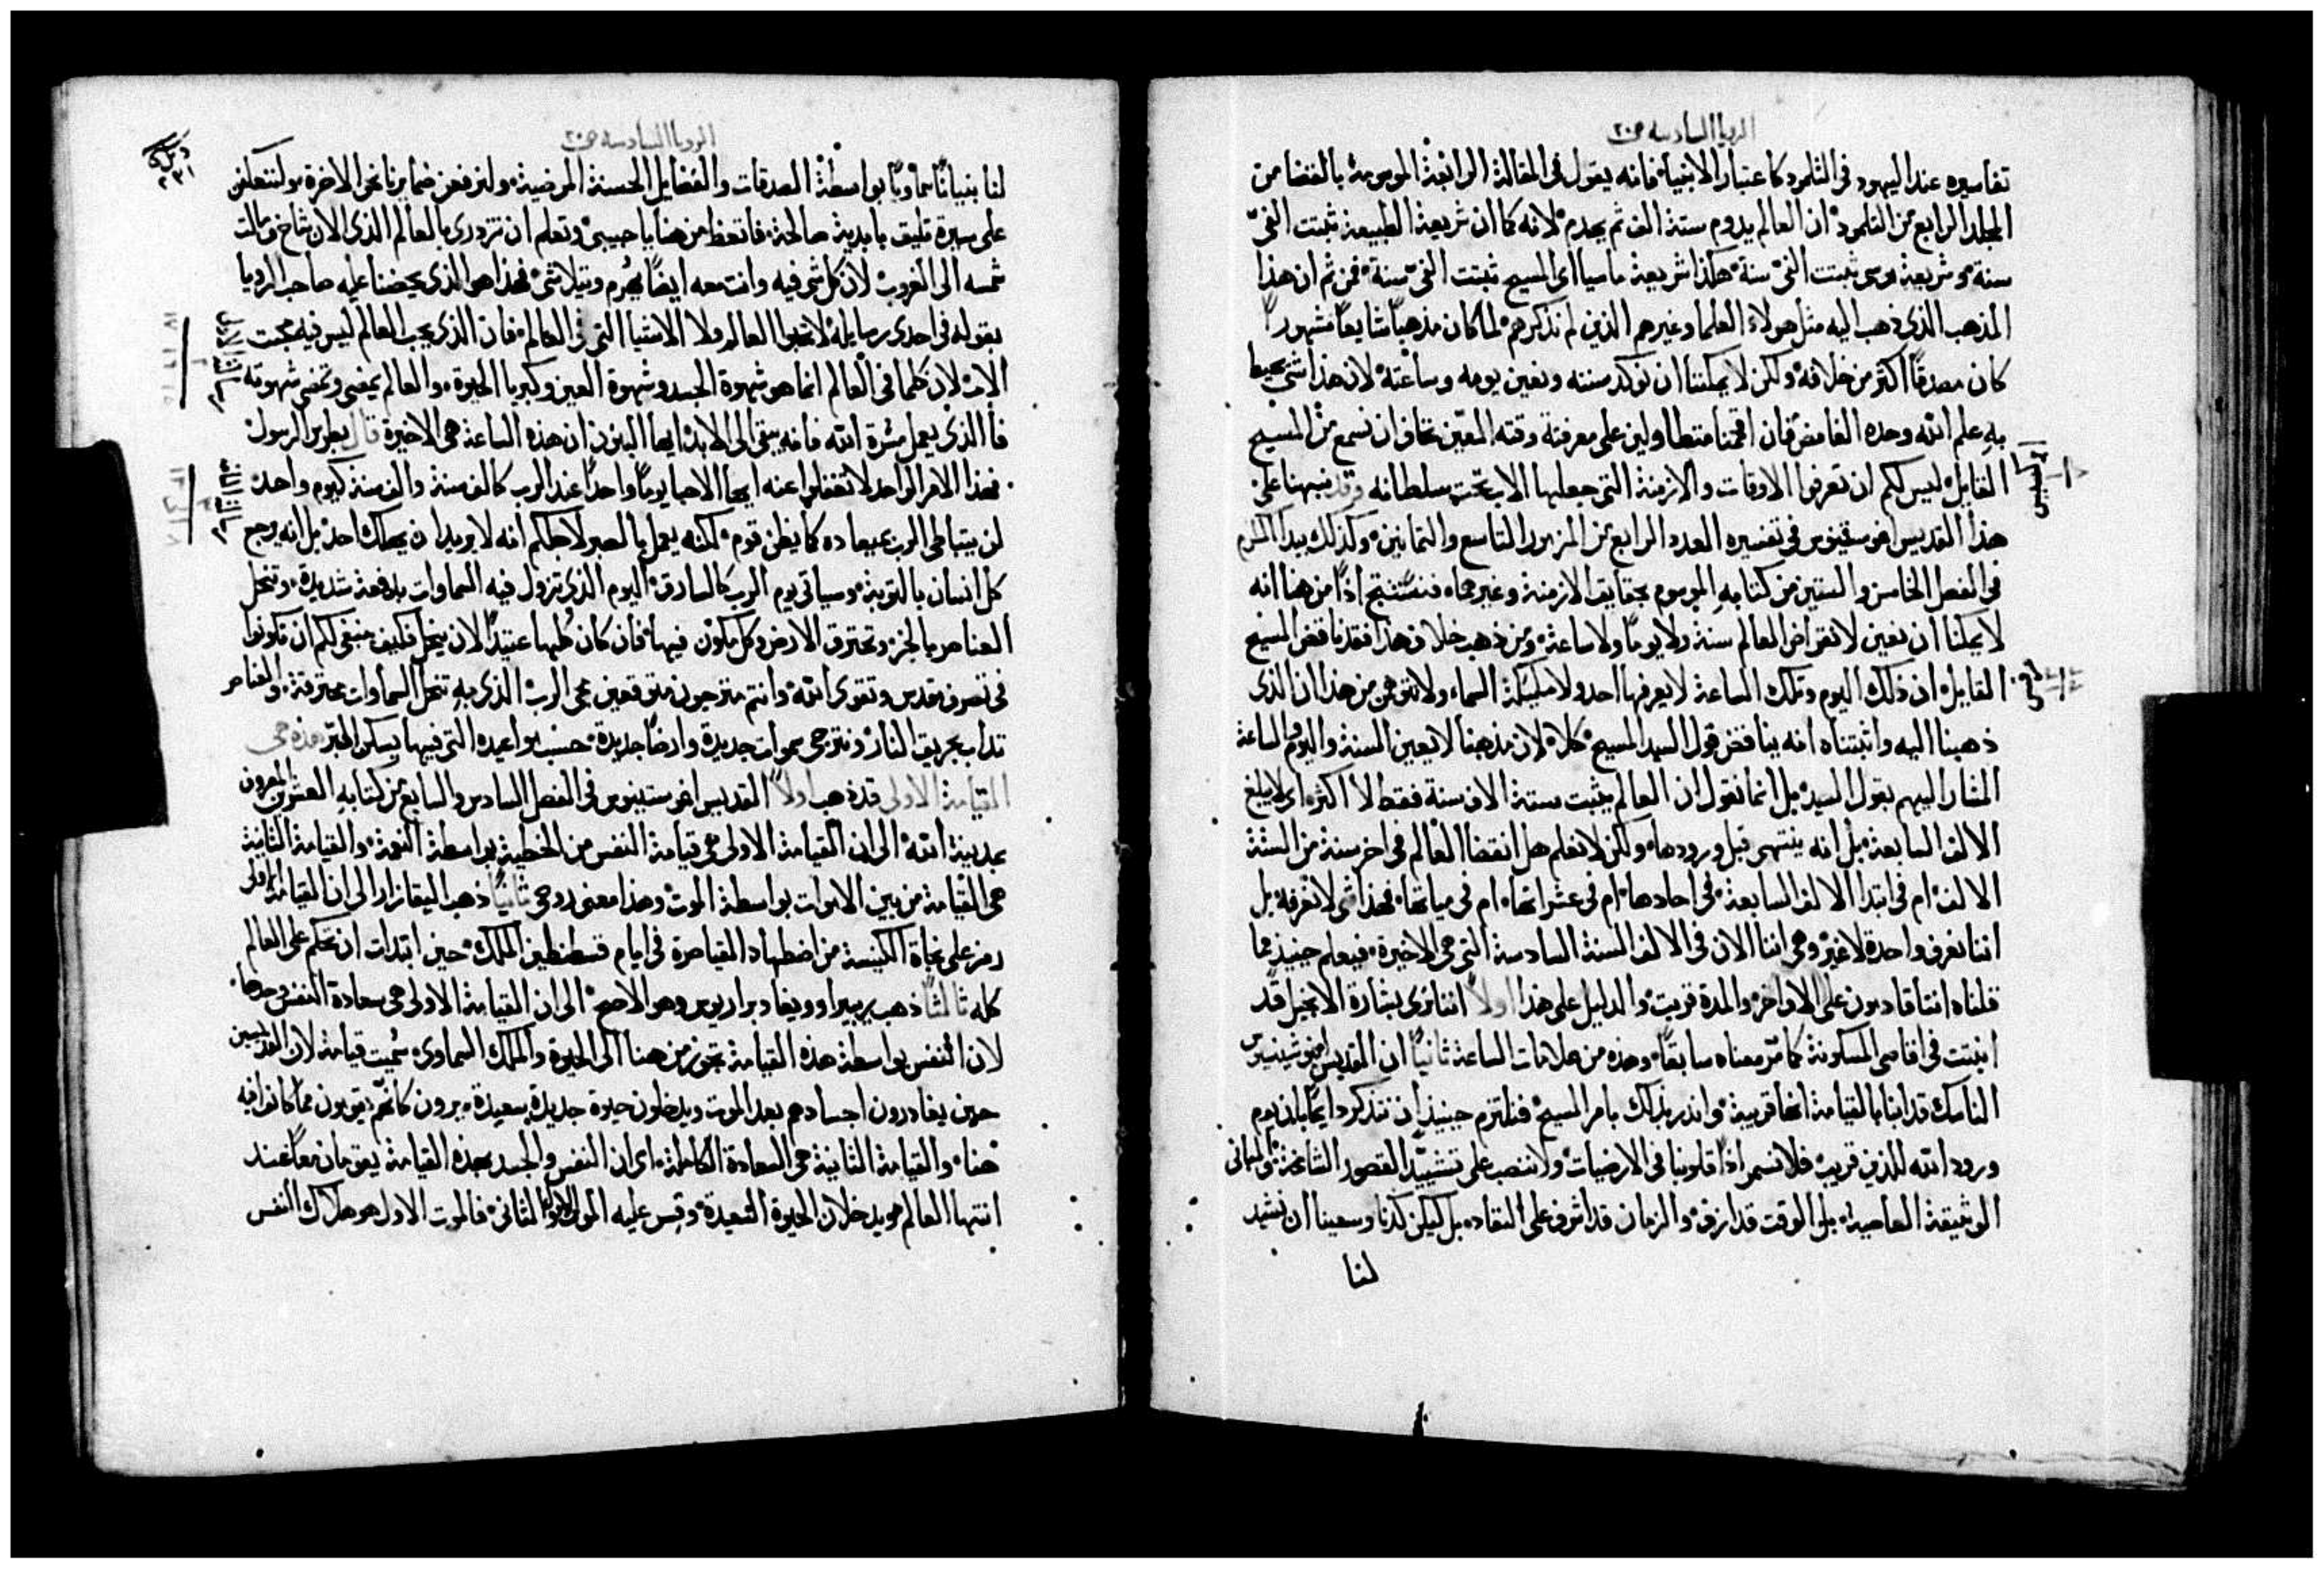 الرويا السادسه ص٢٠
تفاسيره عند اليهود في التلمود كاعتبار الانبياء فانه يقول في المقالة الرابعة الموسومة بالقضا من
المجلد الرابع من التلمود ان العالم يدوم ستة الف ثم يهدم لانه كما ان شريعة الطبيعة ثبتت الفَي
سنة وشريعة موسى ثبتت الفَي سنة هكذا شريعة ماسيا اي المسيح تثبت الفَي سنة فمن ثم ان هذا
المذهب الذي ذهب اليه مثل هولاء العلما وغيرهم الذين لم نذكرهم لما كان مذهبًا شايعًا مشهورًا
كان مصدقًا اكثر من خلافه ولكن لا يمكننا ان نوكد سنته ونعين يومه وساعته لان هذا شي يحيط
به علم الله وحده الغامض فان اقحمنا متطاولين على معرفة وقته المعين نخاف ان نسمع من المسيح
القايل ليس لكم ان تعرفوا الاوقات والازمنة التي جعلها الاب تحت سلطانه وقد نبهنا على
هذا القديس اغوستينوس في تفسيره العدد الرابع من المزمور التاسع والثمانين وكذلك بيدا المكرم
في الفصل الخامس والستين من كتابه الموسوم بحقايق الازمنة وغيرهما فنستنتج اذًا من هنا انه
لا يمكنا ان نعين لانقراض العالم سنة ولا يومًا ولا ساعة ومن ذهب خلاف هذا فقد ناقض المسيح
القايل ان ذلك اليوم وتلك الساعة لا يعرفها احد ولا مليكة السماء ولا نتوهمن من هذا ان الذي
ذهبنا اليه واثبتناه انه يناقض قول السيد المسيح كلا لان مذهبنا لا يعين السنة واليوم والساعة
المشار اليهم بقول السيد بل انما نقول ان العالم يثبت ستة الاف سنة فقط لا اكثر اي لا يبلغ
الالف السابعة بل انه ينتهي قبل ورودها ولكن لا نعلم هل انقضا العالم في اخر سنة من الستة
الالف ام في ابتدا الالف السابعة في احادها ام في عشراتها ام في مياتها فهذا شي لا نعرفه بل
اننا نعرف واحدة لا غير وهي اننا الان في الالف السنة السادسة التي هي الاخيرة فيعلم حينيذ مما
قلناه اننا قادمون على الاواخر والمدة قربت والدليل على هذا اولًا اننا نرى بشارة الانجيل قد
انبثت في اقاصي المسكونة كما مر معناه سابقًا وهذه من علامات الساعة ثانيًا ان القديس
الناسك قد انبانا بالقيامة انها قريبة وانذر بذلك بامر المسيح فنلتزم حينيذ ان نتذكر دايمًا بان يوم
ورود الله للدين قريب فلا نسمر اذًا قلوبنا في الارضيات ولا ننصب على تشييد القصور الشامخة والمباني
الوثيقة العاصية بل الوقت قد ازف والزمان قد اشرف على النفاد بل ليكن كدنا وسعينا ان نشيد
لنا
الرويا السادسه ص٢٠
٢٣١
لنا بنيانًا سماويًا بواسطة الصدقات والفضايل الحسنة المرضية ولنرفعن ضمايرنا نحو الاخرة ولنتعكفن
على سيرة تليق بابدية صالحة فاتعظ من هنا يا حبيبي وتعلم ان تزدري بالعالم الذي الان شاخ ومالت
شمسه الى الغروب لان كل شي فيه وانت معه ايضًا يهرم ويتلاشى فهذا هو الذي يحضنا عليه صاحب الرويا
بقوله في احدى رسايله لا تحبوا العالم ولا الاشيا التي في العالم فان الذي يحب العالم ليس فيه محبت
الاب لان كلما في العالم انما هو شهوة الجسد وشهوة العين وكبريا الحيوة والعالم يمضي وتمضي شهوته
فاما الذي يعمل مشرة الله فانه يبقى الى الابد ايها البنون ان هذه الساعة هي الاخيرة قال بطرس الرسول
فهذا الامر الواحد لا تغفلوا عنه ايها الاحبا يومًا واحدًا عند الرب كالف سنة والف سنة كيوم واحد
لن يتباطى الرب بميعاده كما يظن قوم لكنه يعمل بالصبر لاجلكم انه لا يريد ان يهلك احد بل انه يرجع
كل انسان بالتوبة وسياتي يوم الرب كالسارق اليوم الذي تزول فيه السماوات بدفعة شديدة وتنحل
العناصر بالحر وتحترق الارض وكل مكون فيها فان كان كلها عتيدًا لان ينحل فكيف ينبغي لكم ان تكونوا
في تصرف مقدس وتقوى الله وانتم مترجون متوقعين مجى الرب الذي به تنحل السماوات محترقة والعناصر
تذاب بحريق النار ونترجى سموات جديدة وارضًا جديدة حسب مواعيده التي فيها يسكن البر هذه هي
القيامة الاولى قد ذهب اولًا القديس اغوستينوس في الفصل السادس والسابع من كتابه العشرين المعروف
بمدينة الله الى ان القيامة الاولى هي قيامة النفس من الخطية بواسطة النعمة والقيامة الثانية
هي القيامة من بين الاموات بواسطة الموت وهذا معنى روحي ثانيًا ذهب اليقازار الى ان القيامة الاولى
رمز على نجاة الكنيسة من اضطهاد القياصرة في ايام قسطنطين الملك حين ابتدات ان تحكم على العالم
كله ثالثًا ذهب بريرا وويغا وبراريوس وهو الاصح الى ان القيامة الاولى هي سعادة النفس وحدها
لان النفس بواسطة هذه القيامة تجوز من هنا الى الحيوة والملك السماوي سميت قيامة لان القديسين
حين يغادرون اجسادهم بعد الموت ويدخلون حيوة جديدة سعيدة يرون كانهم يقومون مما كانوا فيه
هنا والقيامة الثانية هي السعادة الكاملة اي ان النفس والجسد بهذه القيامة يقومان معًا عند
انتها العالم مويدخلان الحيوة السعيدة وقس عليه الموت الاول والثاني فالموت الاول هو هلاك النفس